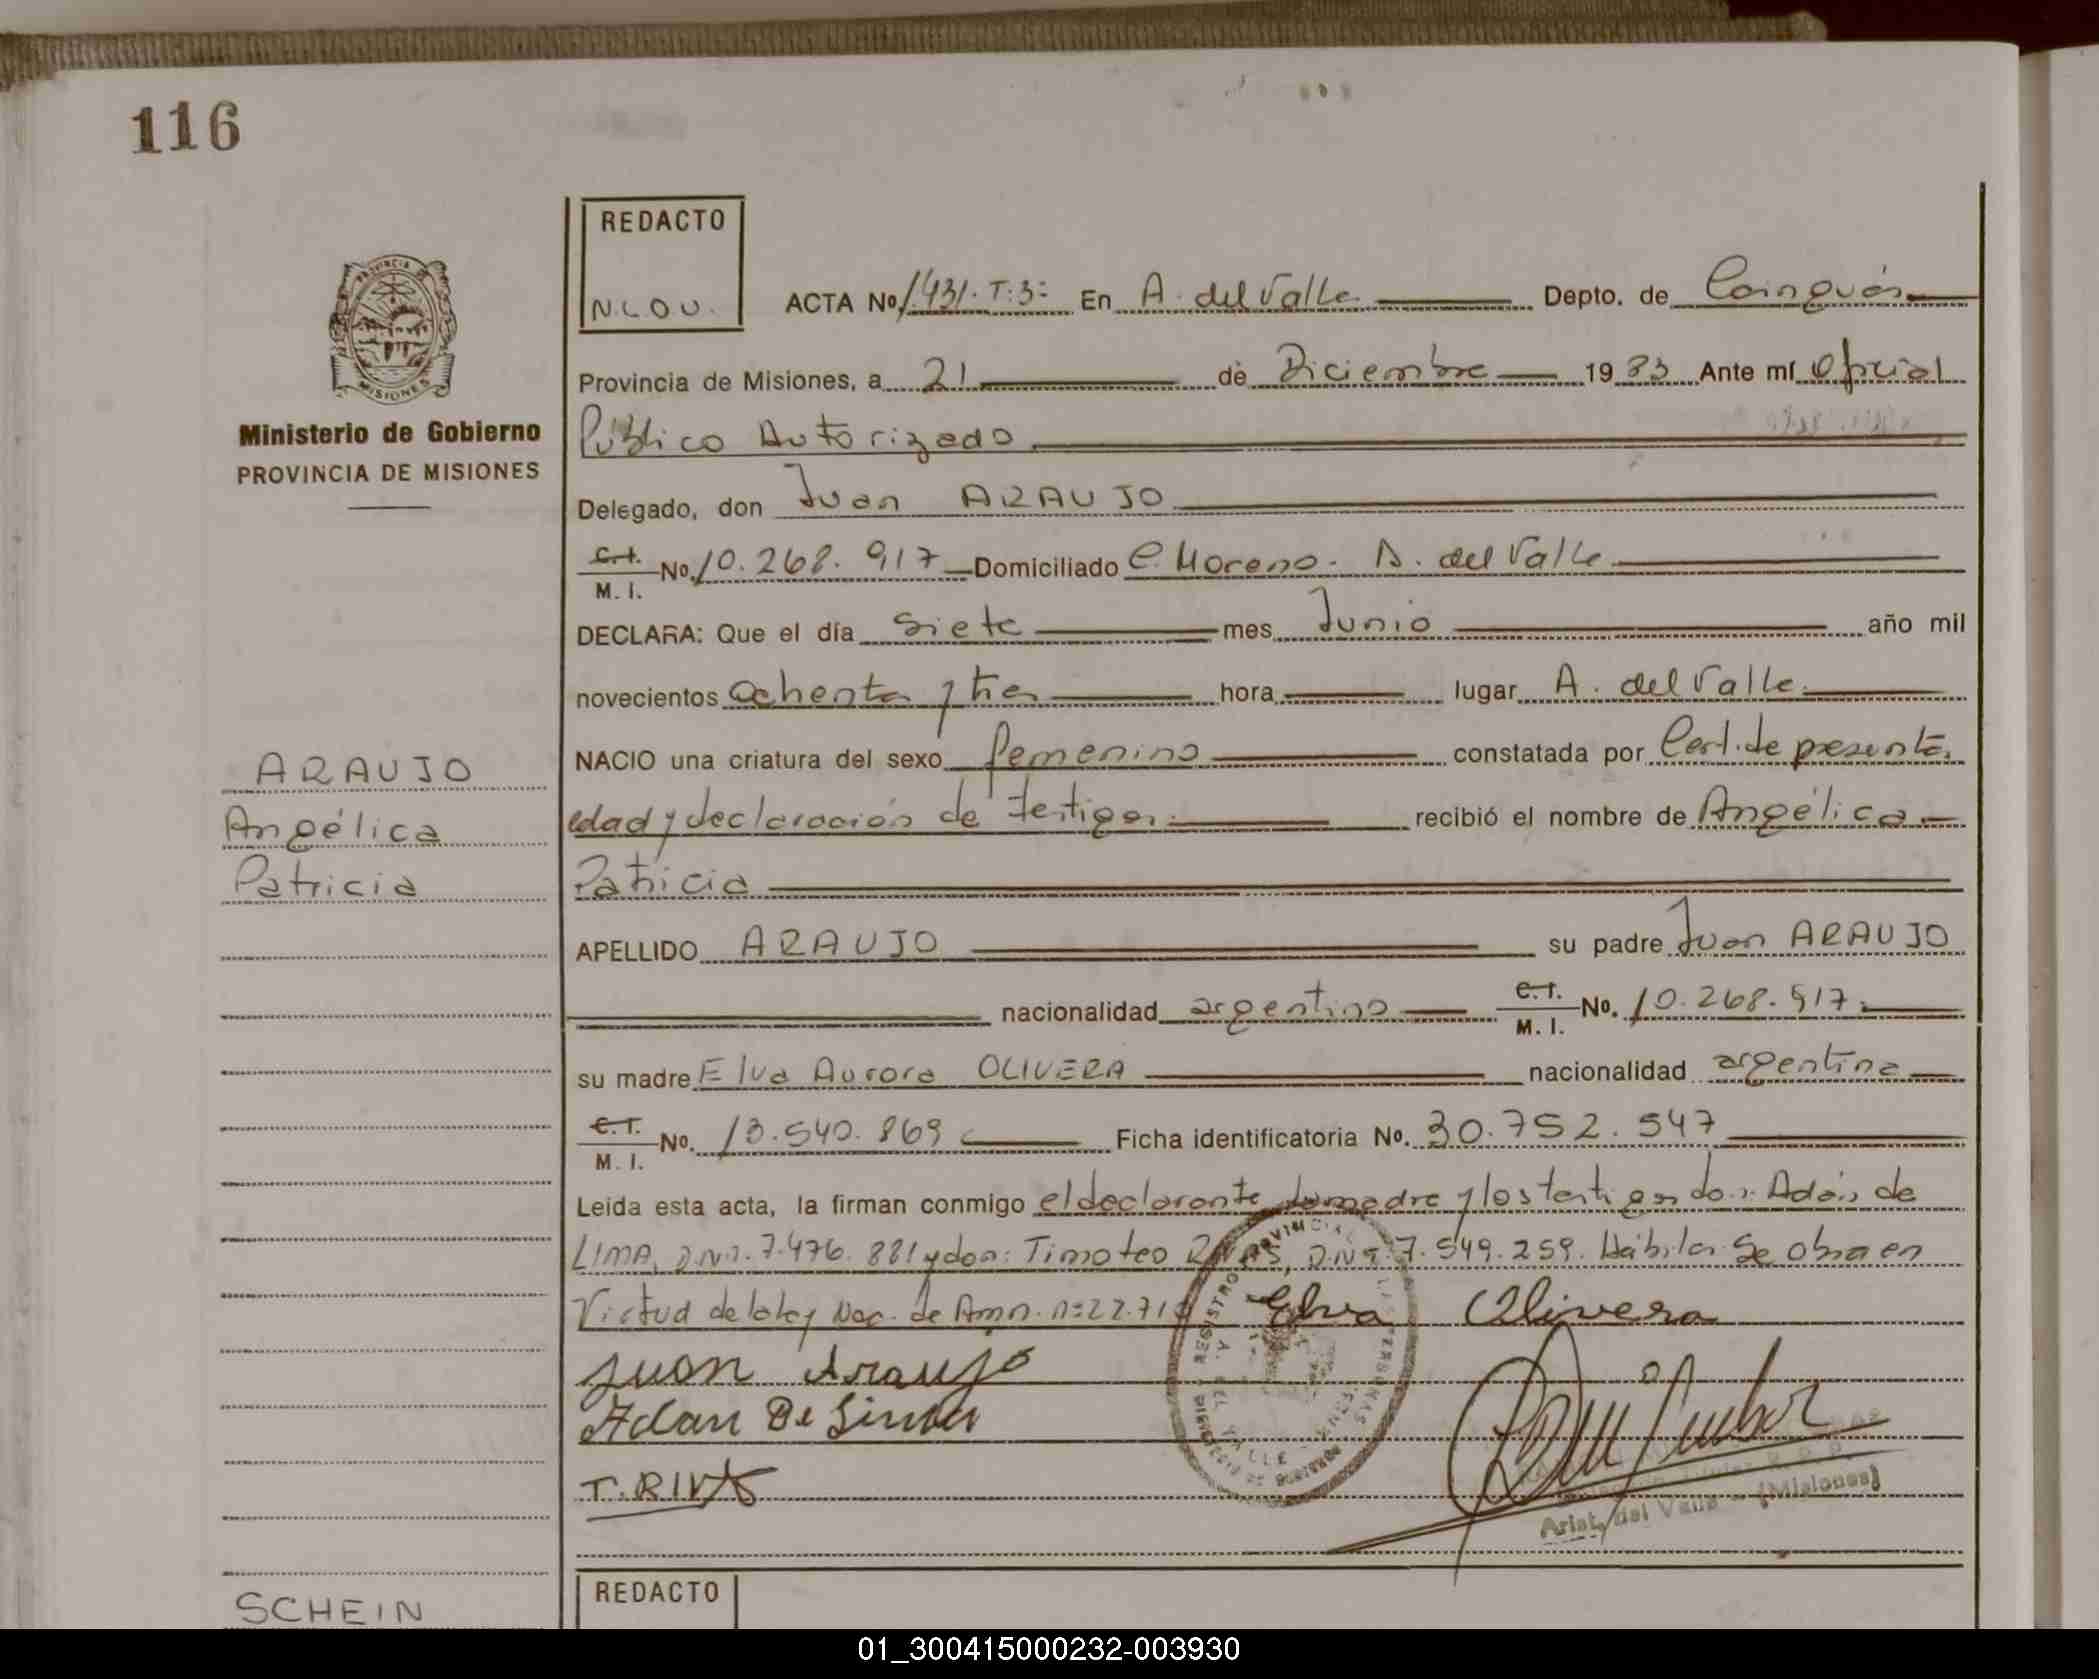 116
REDACTO
N.L.O.U.
ACTA No 1.431. T:3: En A. del Valle Depto. de Cainguás
Provincia de Misiones, a 21 de Diciembre 1983 Ante mí Oficial
Público Autorizado
Delegado, don Juan ARAUJO
C.I. M. I. No. 10.268.917 Domiciliado C. Moreno - A. del Valle
DECLARA: Que el día Siete mes Junio año mil
novecientos Ochenta y tres hora lugar A. del Valle
NACIO una criatura del sexo femenino constatada por Cert. de presunta
edad y declaración de testigos recibió el nombre de Angélica
Patricia
APELLIDO ARAUJO su padre Juan ARAUJO
nacionalidad argentino C.I. M. I. No. 10.268.917
su madre Elva Aurora OLIVERA nacionalidad argentina
C.I. M. I. No. 13.540.869 Ficha identificatoria No. 30.752.547
Leida esta acta, la firman conmigo el declarante, la madre y los testigos don: Adán de
LIMA, D.N.I. 7.476.881 y don: Timoteo RIVAS, D.N.I. 7.549.259. Hábiles. Se obra en
Virtud de la ley Nac. de Amn. n: 22.710
Elva Olivera
Juan Araujo
Adan De Lima
T. RIVAS
PROVINCIA DE
MISIONES
Ministerio de Gobierno
PROVINCIA DE MISIONES
ARAUJO
Angélica
Patricia
SCHEIN
REGISTRO PROVINCIAL
DEL VALLE
Arist. del Valle - (Misiones)
REDACTO
01_300415000232-003930